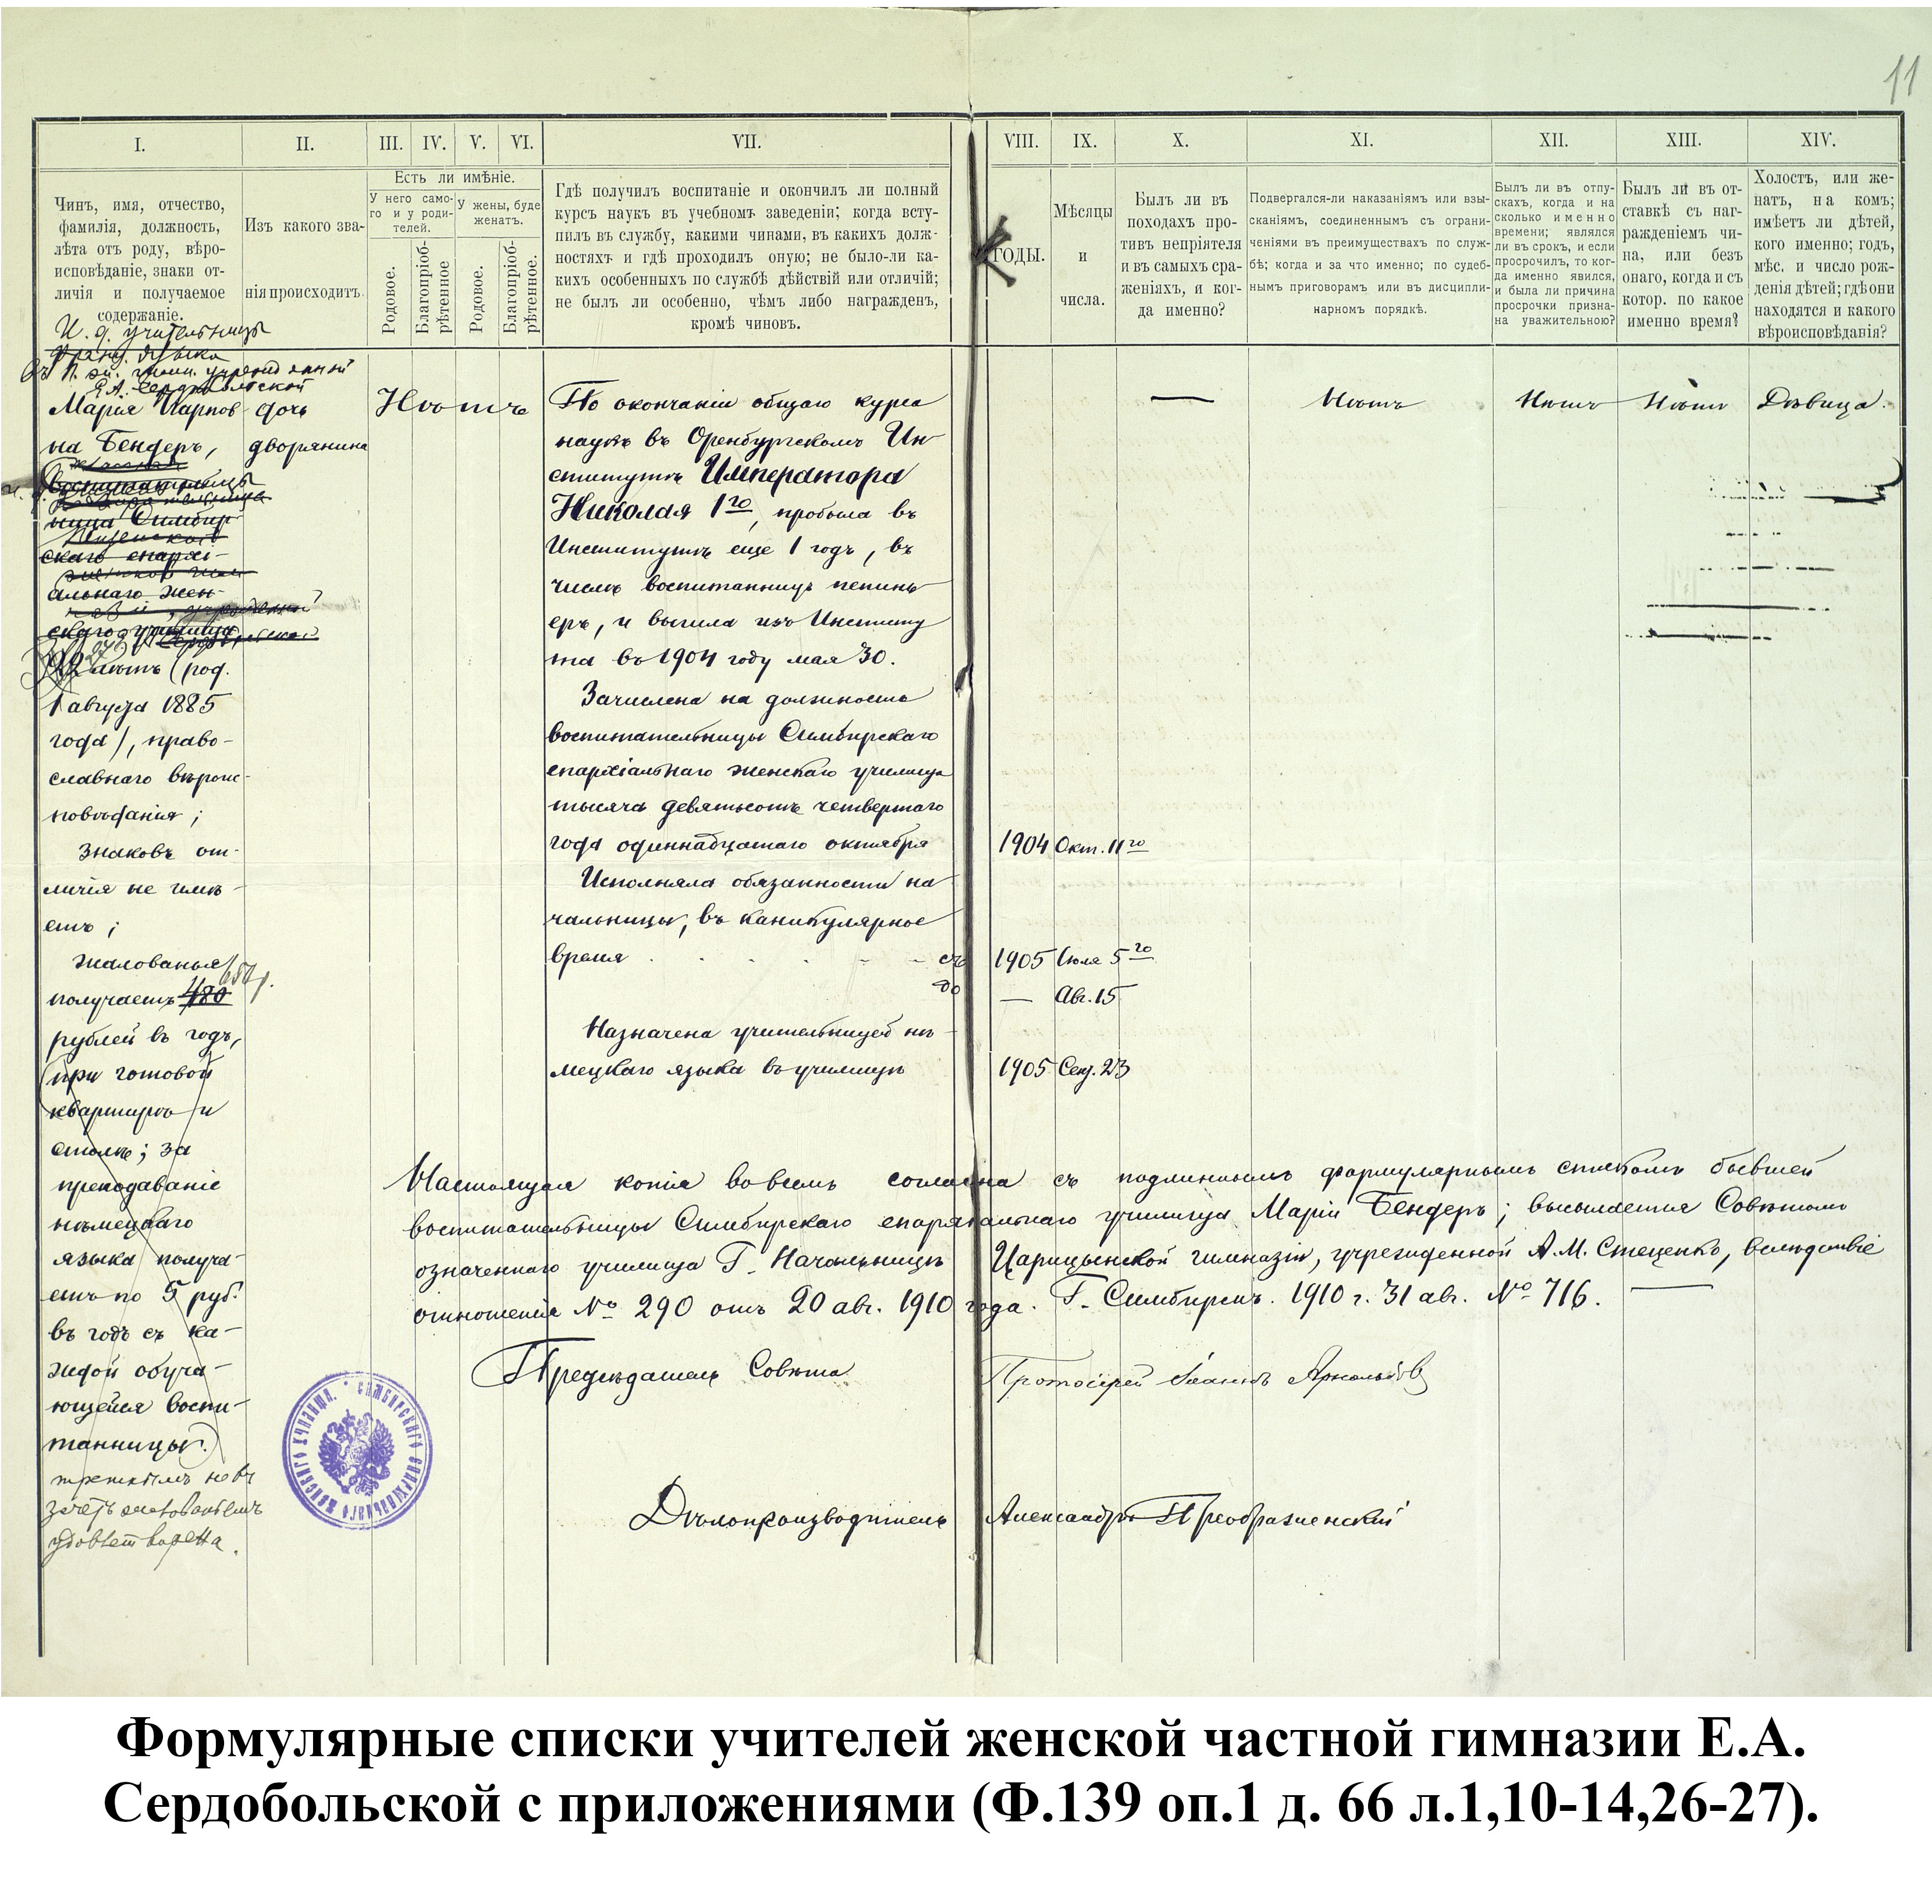 11
I. II. III. IV. V. VI. VII. VIII. IX. X. XI. XII. XIII. XIV.
Чинъ, имя, отчество,
фамилія, должность,
лѣта отъ роду, вѣро-
исповѣданіе, знаки от-
личія и получаемое
содержаніе.
Изъ какого зва-
нія происходитъ.
Есть ли имѣніе.
У него само-
го и у роди-
телей.
У жены, буде
женатъ.
Родовое.
Благопріоб-
рѣтенное
Родовое.
Благопріоб-
рѣтенное.
Гдѣ получилъ воспитаніе и окончилъ ли полный
курсъ наукъ въ учебномъ заведеніи; когда всту-
пилъ въ службу, какими чинами, въ какихъ долж-
ностяхъ и гдѣ проходилъ оную; не было-ли ка-
кихъ особенныхъ по службѣ дѣйствій или отличій;
не былъ ли особенно, чѣмъ либо награжденъ,
кромѣ чиновъ.
ГОДЫ.
Мѣсяцы
и
числа.
Былъ ли въ
походахъ про-
тивъ непріятеля
и въ самыхъ сра-
женіяхъ, и ког-
да именно?
Подвергался-ли наказаніямъ или взы-
сканіямъ, соединеннымъ съ ограни-
ченіями въ преимуществахъ по служ-
бѣ; когда и за что именно; по судеб-
нымъ приговорамъ или въ дисципли-
нарномъ порядкѣ.
Былъ ли въ отпу-
скахъ, когда и на
сколько именно
времени; являлся
ли въ срокъ, и если
просрочилъ, то ког-
да именно явился,
и была ли причина
просрочки призна-
на уважительною?
Былъ ли въ от-
ставкѣ съ наг-
ражденіемъ чи-
на, или безъ
онаго, когда и съ
котор. по какое
именно время?
Холостъ, или же-
натъ, на комъ;
имѣетъ ли дѣтей,
кого именно; годъ,
мѣс. и число рож-
денія дѣтей; гдѣ они
находятся и какого
вѣроисповѣданія?
И. д. учительницы
франц. языка
Е.А. Сердобольской
Марія Карпов-
на Бендеръ,
воспитательница
Симбир-
скаго епархі-
альнаго жен-
скаго училища
лѣтъ (род.
1 августа 1885
года), право-
славнаго вѣроис-
повѣданія;
Знаковъ от-
личія не имѣ-
етъ;
жалованья
получаетъ 480
рублей въ годъ,
(при готовой
квартирѣ и
столѣ; за
преподаваніе
нѣмецкаго
языка получа-
етъ по 5 руб.
въ годъ съ ка-
ждой обуча-
ющейся воспи-
танницы.)
третнымъ не въ
зачетъ жалованьемъ
удовлетворена.
дочь
дворянина
Нѣтъ
По окончаніи общаго курса
наукъ въ Оренбургскомъ Ин-
ститутѣ Императора
Николая 1го, пробыла въ
Институтѣ еще 1 годъ, въ
числѣ воспитанницъ пепинь-
еръ, и вышла изъ Институ
та въ 1904 году мая 30.
Зачислена на должность
воспитательницы Симбирскаго
епархіальнаго женскаго училища
тысяча девятьсотъ четвертаго
года одиннадцатаго октября
1904 Окт. 11го
Исполняла обязанности на-
чальницы, въ каникулярное
время . . . . съ
1905 Іюля 5го
до
— Авг. 15
Назначена учительницей нѣ-
мецкаго языка въ училищѣ
1905 Сен. 23
—
Нѣтъ
Нѣтъ
Нѣтъ
Дѣвица.
Настоящая копія во всемъ согласна съ подлиннымъ формулярнымъ спискомъ бывшей
воспитательницы Симбирскаго епархіальнаго училища Маріи Бендеръ; высылается Совѣтомъ
означеннаго училища Г. Начальницѣ Царицынской гимназіи, учрежденной А.М. Стеценко, вслѣдствіе
отношенія № 290 отъ 20 авг. 1910 года. Г. Симбирскъ. 1910 г. 31 авг. № 716.
Предсѣдатель Совѣта Протоіерей Іоаннъ Арнольдовъ
СИМБИРСКАГО ЕПАРХІАЛЬНАГО ЖЕНСКАГО УЧИЛИЩА.
Дѣлопроизводитель Александръ Преображенскій
Формулярные списки учителей женской частной гимназии Е.А.
Сердобольской с приложениями (Ф.139 оп.1 д. 66 л.1,10-14,26-27).